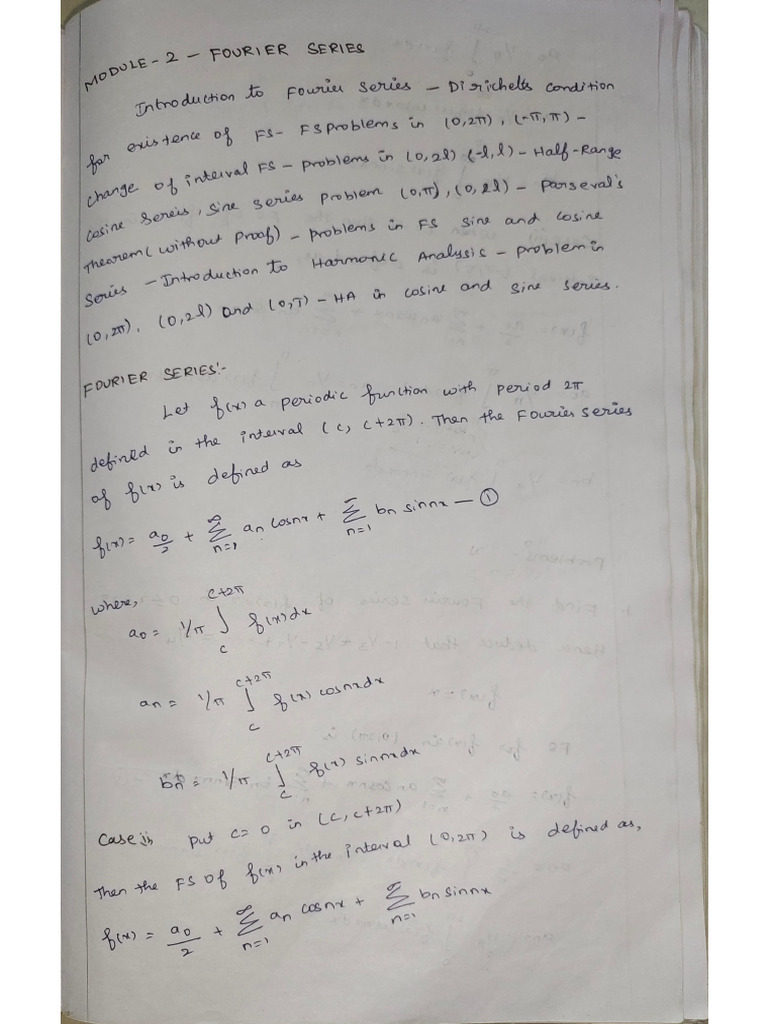 MODULE - 2 - FOURIER SERIES
Introduction to Fourier Series - Dirichelts condition
for existence of FS - FS problems in (0,2π), (-π,π) -
change of interval FS - problems in (0,2l) (-l,l) - Half-Range
cosine Sereis, sine series problem (0,π), (0,2l) - Parseval's
Theorem (without proof) - problems in FS sine and cosine
Series - Introduction to Harmonic Analysis - problem in
(0,2π), (0,2l) and (0,T) - HA in cosine and sine series.
FOURIER SERIES:-
Let f(x) a periodic function with period 2π
defined in the interval (c, c+2π). Then the Fourier series
of f(x) is defined as
f(x) = a0/2 + ∞∑n=1 an cosnx + ∞∑n=1 bn sinnx — ①
where,
a0 = 1/π ∫c^c+2π f(x)dx
an = 1/π ∫c^c+2π f(x) cosnxdx
bn = 1/π ∫c^c+2π f(x) sinnxdx
Case i) put c=0 in (c, c+2π)
Then the FS of f(x) in the interval (0,2π) is defined as,
f(x) = a0/2 + ∞∑n=1 an cosnx + ∞∑n=1 bn sinnx